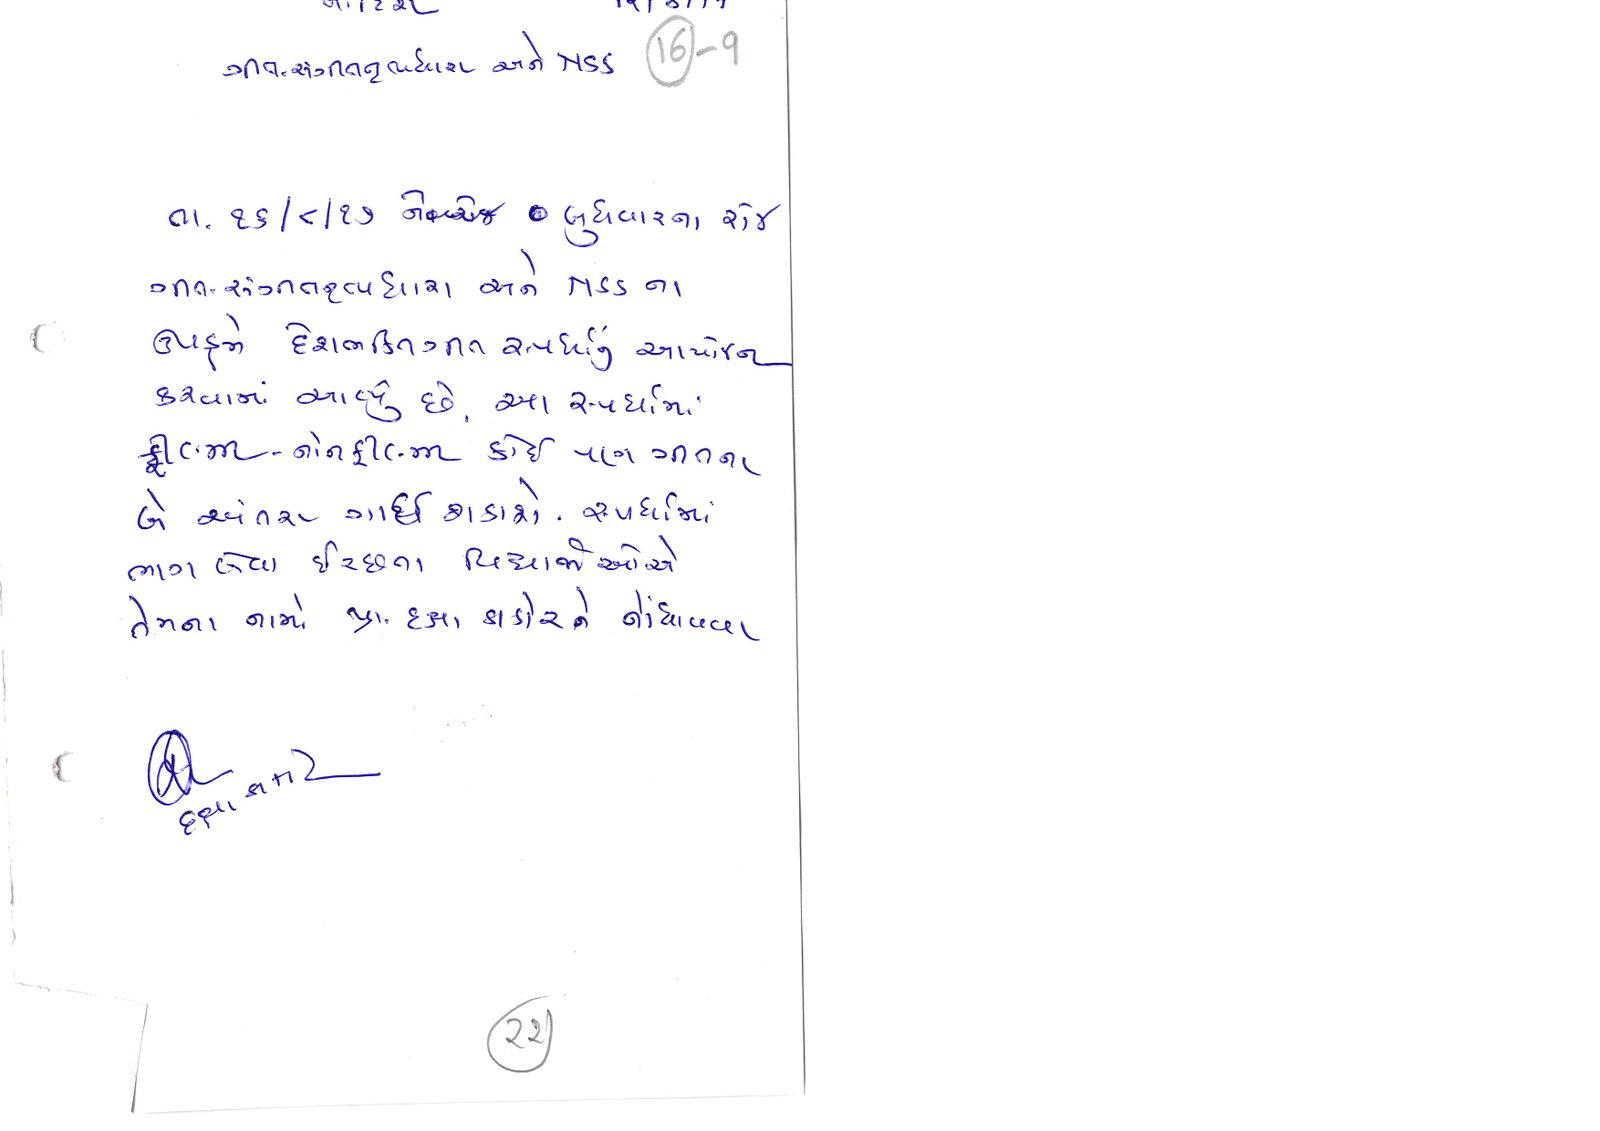 ગીત-સંગીતનૃત્યધારા અને NSS
16-9
તા. ૧૬/૮/૧૭ બુધવારના રોજ
ગીત-સંગીતનૃત્યધારા અને NSS ના
ઉપક્રમે દેશભક્તિગીત સ્પર્ધાનું આયોજન
કરવામાં આવ્યું છે, આ સ્પર્ધામાં
ફીલ્મી-નોનફીલ્મી કોઈ પણ ગીતના
બે અંતરા ગાઈ શકાશે. સ્પર્ધામાં
ભાગ લેવા ઈચ્છતા વિદ્યાર્થીઓએ
તેમના નામો પ્રા. દક્ષા ને નોંધાવવા
દક્ષા
૨૨